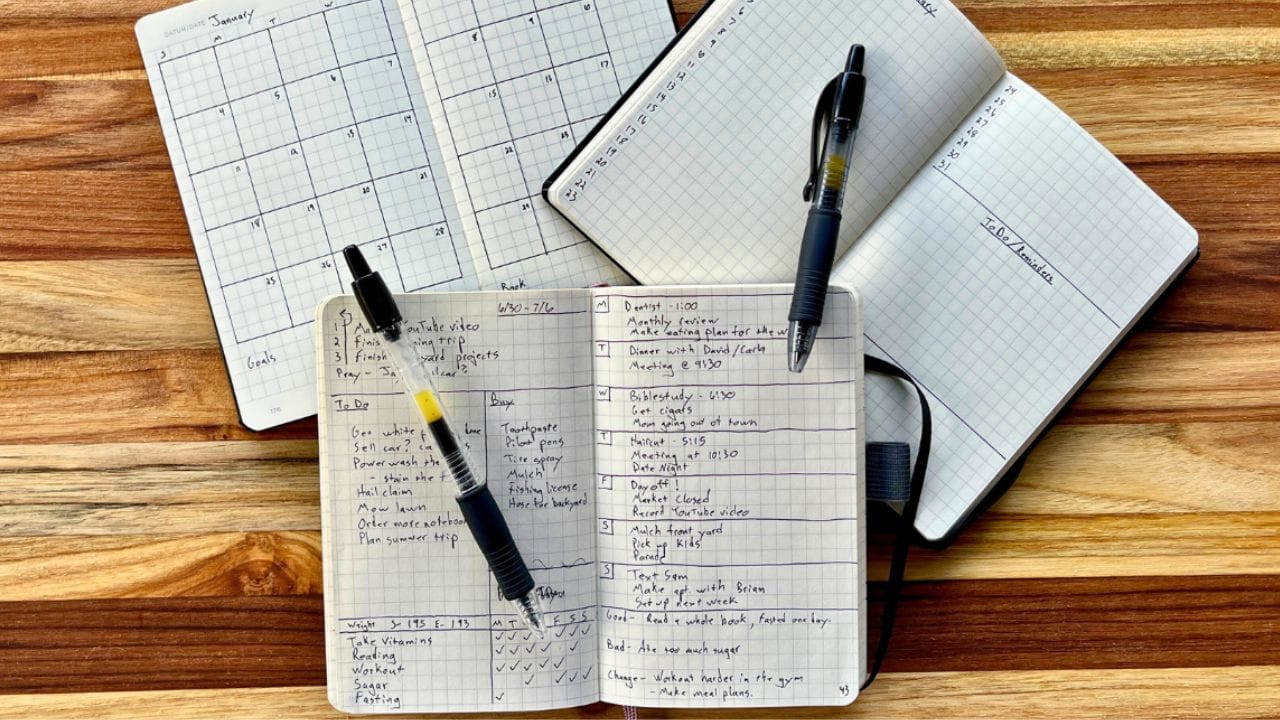 DATUM/DATE January
S M T W
6 7
4 5
13 14
11 12
20 21
18 19
27 28
25 26
Goals
176
9 10
8
16 17
15
23
22
29
Book
6
7
8
9
10
11
12
13
14
15
16
17
18
19
20
21
22
23
24
25
26
27
28
29
30
31
ToDo/Reminders
6/30-7/6
1 YouTube video
2 trip
3 Finish yard projects
Pray -
To Do
Get white
Sell car?
Power wash the
- stain the
Hail claim
Mow lawn
Order more notebook
Plan summer trip
Buy
Toothpaste
Pilot pens
Tire spray
Mulch
Fishing license
Hose for backyard
Weight S- 195 E- 193 M T F S S
Take Vitamins ✓✓✓ ✓✓✓
Reading ✓✓✓✓ ✓
Workout ✓✓✓✓✓
Sugar ✓ ✓✓✓
Fasting ✓
M Dentist - 1:00
Monthly review
Make eating plan for the w
T Dinner with David/Carla
Meeting @ 9:30
W Biblestudy - 6:30
Get cigars
Mom going out of town
T Haircut - 5:15
Meeting at 10:30
Date Night
F Day off!
Market Closed
Record YouTube video
S Mulch front yard
Pick up Kids
Parade
S Text Sam
Make apt with Brian
Set up next week
Good- Read a whole book, fasted one day.
Bad- Ate too much sugar
Change- Workout harder in the gym
- Make meal plans.
43